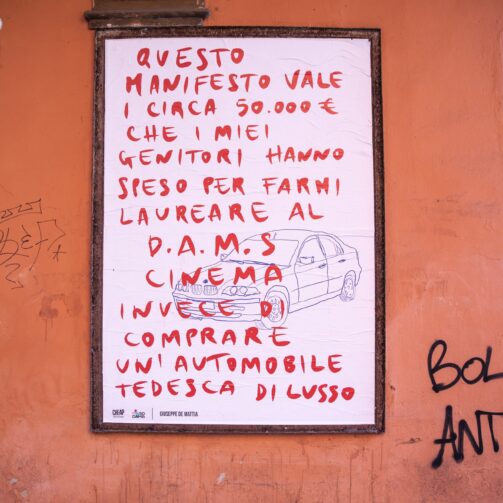 QUESTO
MANIFESTO VALE
I CIRCA 50.000 €
CHE I MIEI
GENITORI HANNO
SPESO PER FARMI
LAUREARE AL
D.A.M.S
CINEMA
INVECE DI
COMPRARE
UN'AUTOMOBILE
TEDESCA DI LUSSO
CHEAP
GIUSEPPE DE MATTIA
BOL
ANT